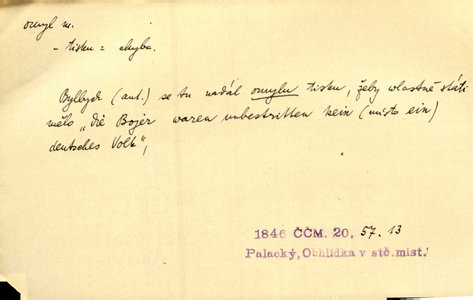 omyl m.
- tisku = chyba.
Byllbych (aut.) se tu nadál omylu tisku, žeby wlastně státi
mělo „die Bojer waren unbestritten kein (místo ein)
deutsches Volk",
1846 ČČM. 20, 57. 13
Palacký, Obhlídka v stč. míst.